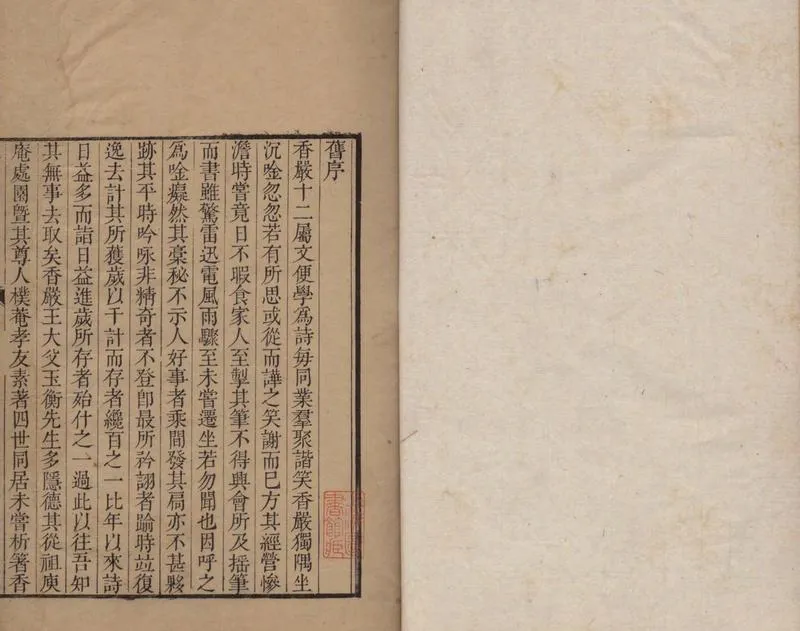 舊序
香嚴十二屬文便學爲詩每同業羣聚諧笑香嚴獨隅坐
沉唫忽忽若有所思或從而譁之笑謝而已方其經營慘
澹時嘗竟日不暇食家人至掣其筆不得興會所及揺筆
而書雖驚雷迅電風雨驟至未嘗遷坐若勿聞也因呼之
爲唫癡然其稾秘不示人好事者乘間發其扃亦不甚夥
跡其平時吟咏非精奇者不登卽最所衿詡者踰時竝復
逸去計其所獲歲以千計而存者纔百之一比年以來詩
日益多而詣日益進歲所存者殆什之一過此以往吾知
其無事去取矣香嚴王大父玉衡先生多隱德其從祖庾
庵處園曁其尊人樸菴孝友素著四世同居未嘗析箸香